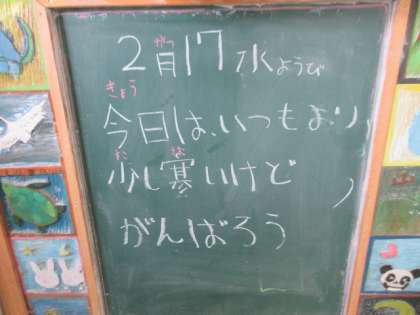 2月17水ようび
今日は、いつもより、
少し寒いけど
がんばろう